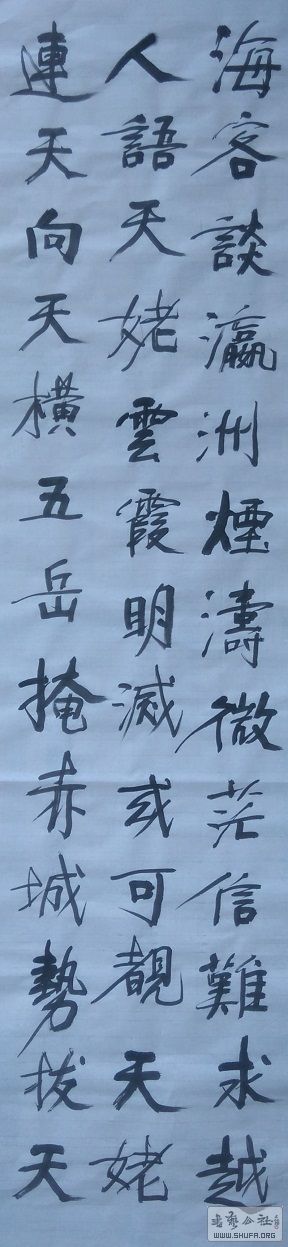 海客談瀛洲煙濤微茫信難求越
人語天姥雲霞明滅或可覩天姥
連天向天橫五岳掩赤城勢拔天
WWW.SHUFA.ORG